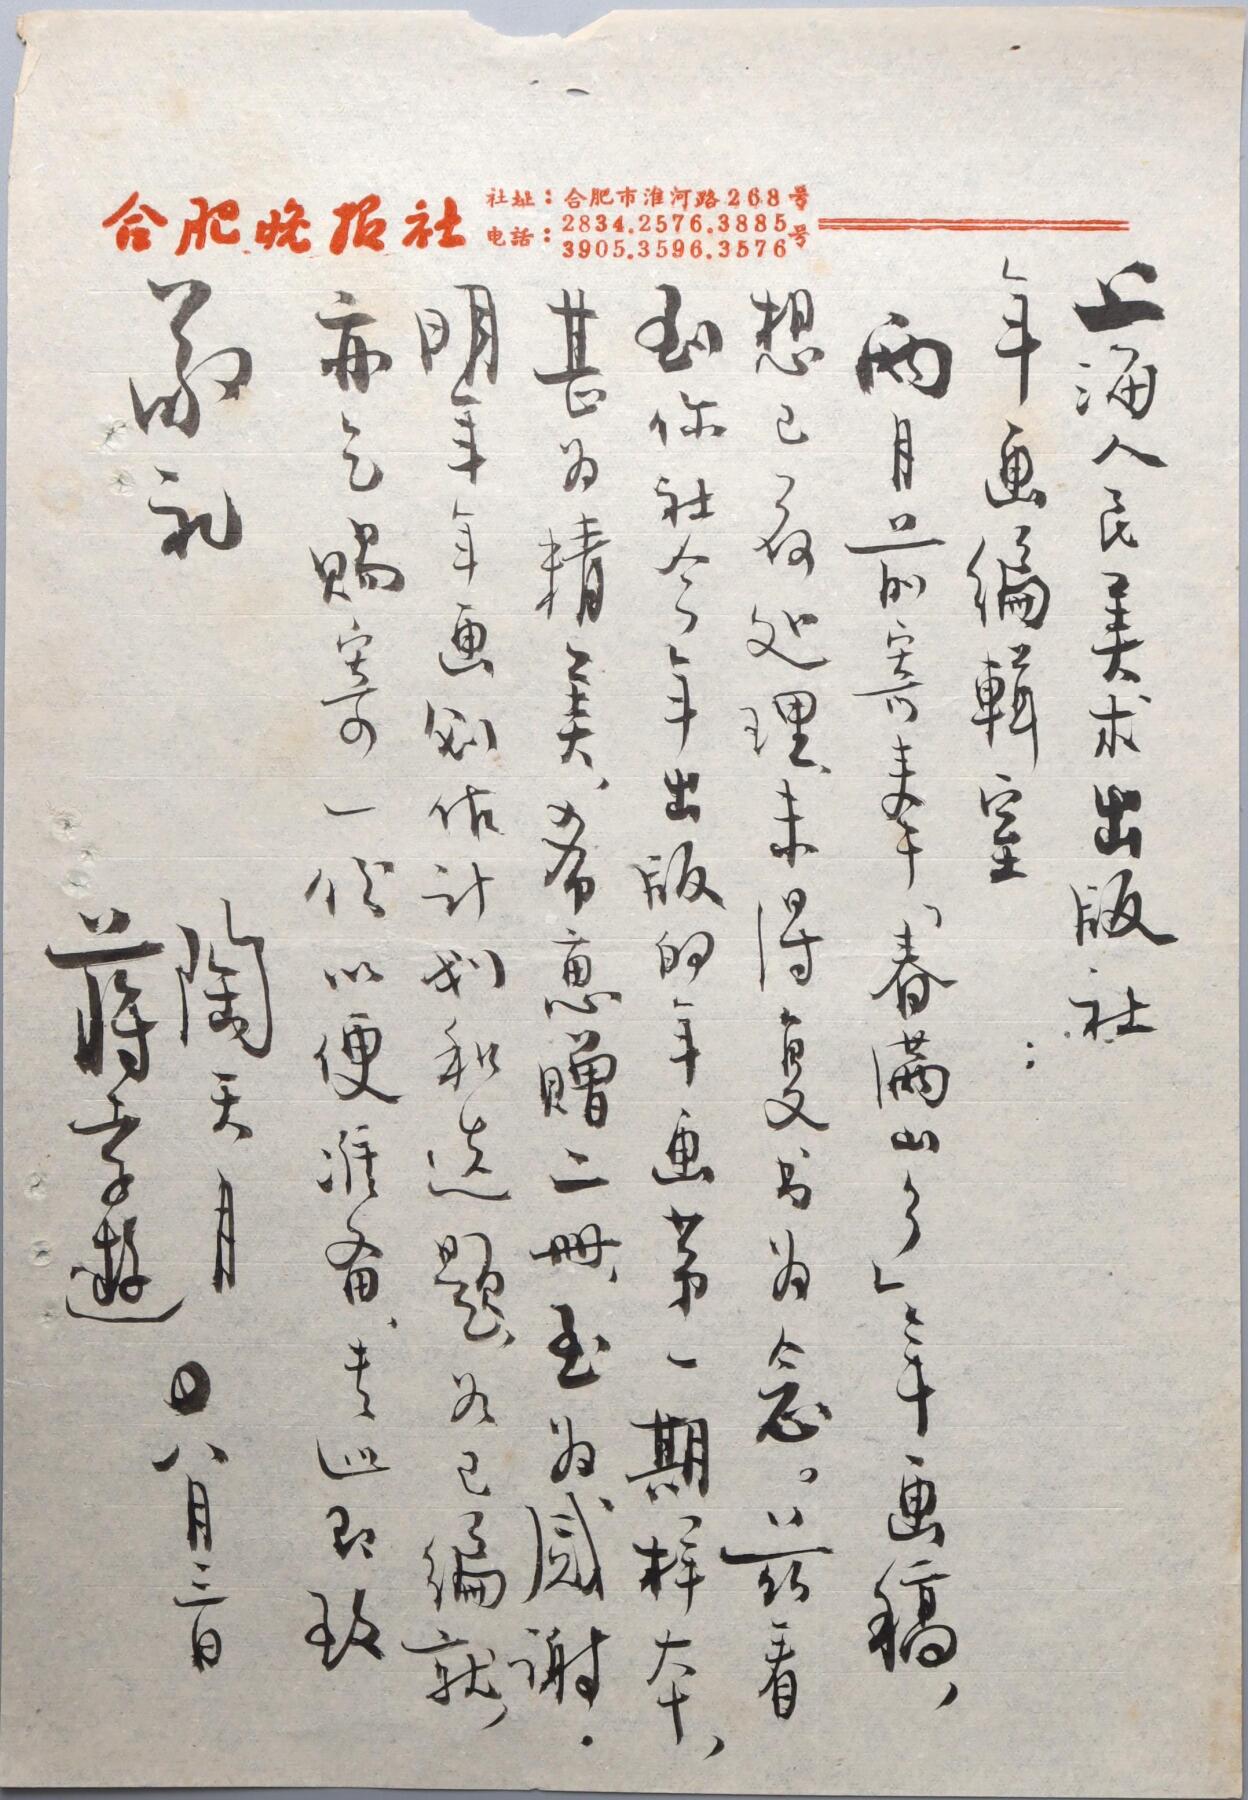 合肥晚报社
社址：合肥市淮河路268号
电话：2834.2576.3885
3905.3596.3576号
上海人民美术出版社
年画编辑室：
两月前寄来“春满山乡”年画稿，
想已有处理，未得复书为念。兹看
到你社今年出版的年画第一期样本，
甚为精美，希惠赠二册，至为感谢．
明年年画创作计划和选题，如已编就，
亦乞赐寄一份以便准备，专此即致
敬礼
陶天月
蒋孝游
八月三日